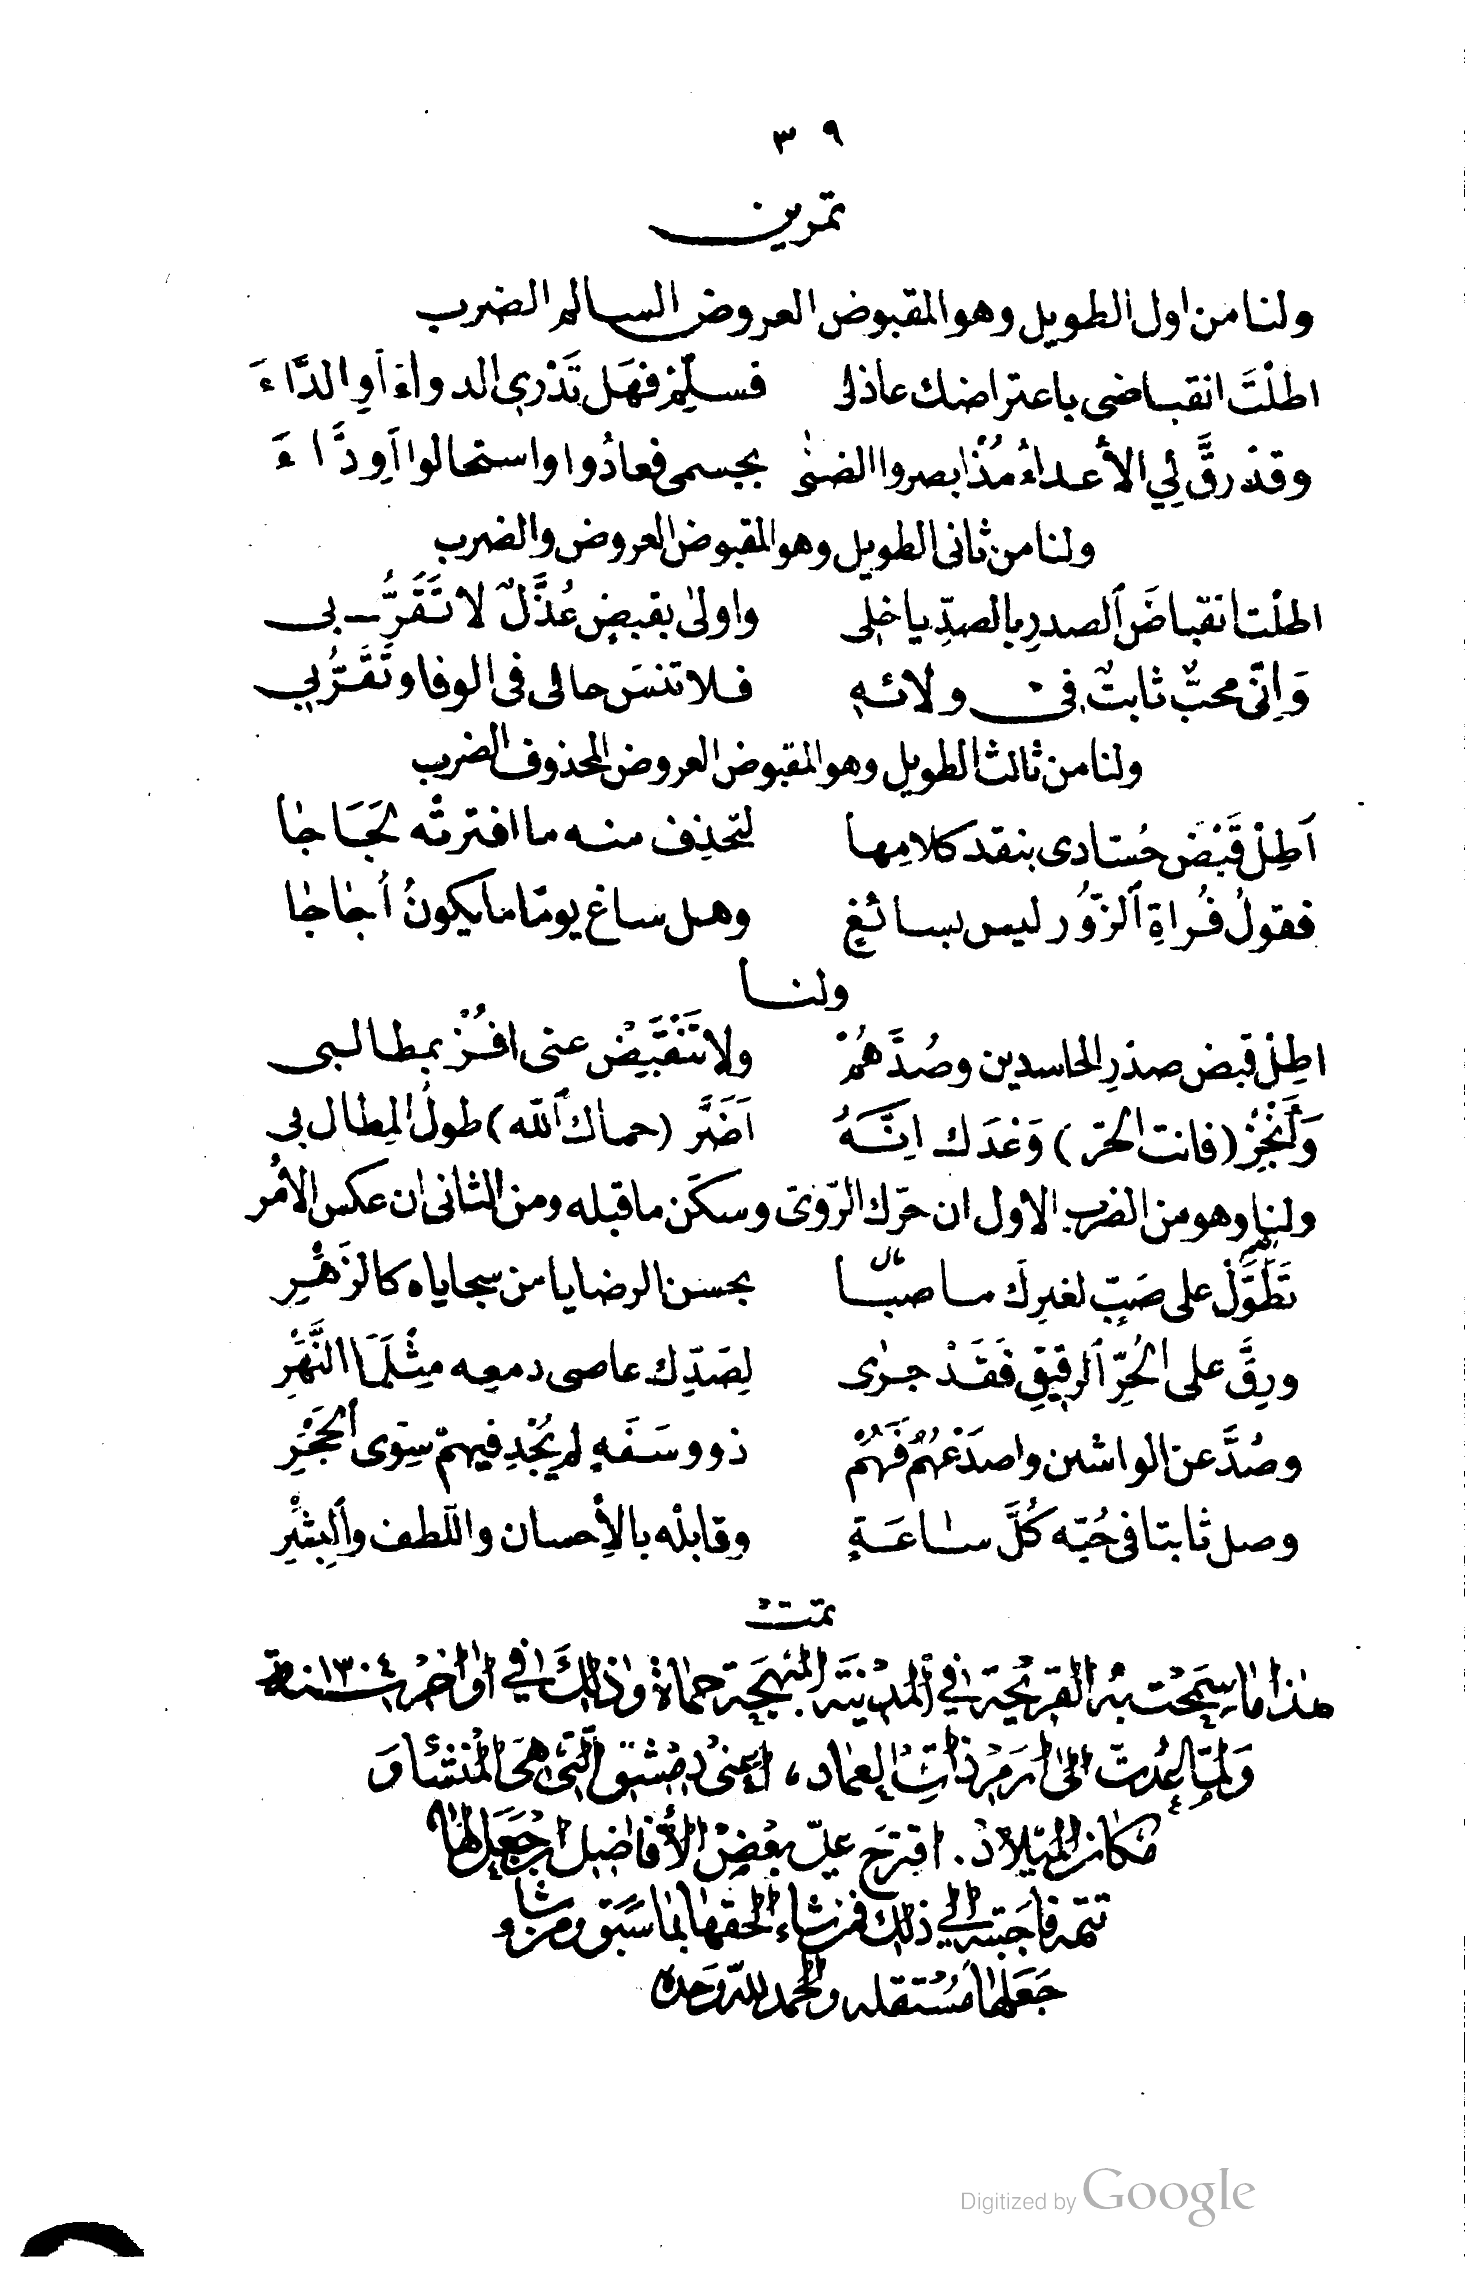 ٣٩
تمرين
ولنا من اول الطويل وهو المقبوض العروض السالم الضرب
اطلْتَ انقباضى باعتراضك عاذلى فسلِّمْ فهَل تَدْرِى الدواءَ أوِ الدَّاءَ
وقدْ رقَّ لِي الأعداءُ مُذْ ابصروا الضنٰى بجسمى فعادُوا واستحالوا أوِدَّاءَ
ولنا من ثانى الطويل وهو المقبوض العروض والضرب
اطلْت انقباضَ ٱلصدرِ بالصدِّ ياخلِى واولىٰ بقبضٍ عُذَّلٌ لا تَقَرُّ بى
وَاِنّى محبٌّ ثابتٌ فى ولائهِ فلا تنسَ حالى فى الوفا وتَقَرُّبِي
ولنا من ثالث الطويل وهو المقبوض العروض المحذوف الضرب
اَطِلْ قَبْضَ حُسّادى بنقد كلامِها لتحذِف منه ما افترتْه لَجَاجَا
فقولُ فُراةِ ٱلزّوُر ليس بسائغٍ وهل ساغ يومًا ما يكونُ أُجاجا
ولنا
اطِلْ قبض صدْرِ الحاسدين وصُدَّهُمْ ولا تَنْقَبِضْ عنى افُزْ بمطالبى
وَأَنْجِزْ (فانت الحرّ) وَعْدَك اِنَّهُ اَضَرَّ (حماك ٱللّٰه) طولُ المِطال بى
ولنا وهو من الضرب الاول ان حرّك الرّوىّ وسكّن ما قبله ومن الثانى ان عكس الأمْر
تَطَوَّلْ على صَبٍّ لغيرِك ما صبّا مال بحسن الرضا يا من سجاياه كالزَهْرِ
ورِقَّ على الحُرِّ ٱلرقيقِ فَقَدْ جرٰى لِصَدِّك عاصى دمعِه مِثْلَمَا النَّهْرِ
وصُدَّ عن الواشين واصدَعْهُمْ فَهُمْ ذوو سَفَهٍ لم يُجْدِ فيهمْ سِوَى ٱلحَجْرِ
وصل ثابتا فى حُبّه كُلَّ ساعَةٍ وقابلْه بالأِحسان واللّطف وٱلبِشْرِ
تمت
هٰذا ما سمحت به القريحة في ٱلمدينة البهجة حماة وذلك في اواخر سنة ١٣٠٤
وَلمّا عُدت الى ارم ذات العماد، اعنى دمشق الّتى هى المنشأ و
مكان الميلاد. اقترح علىّ بعض الأفاضل ان جعل لها
تتمه فاجبته الى ذلك فمن شاء الحقها بما سبق ومن شاء
جعلها مستقله والحمد للّه وحده
Digitized by Google